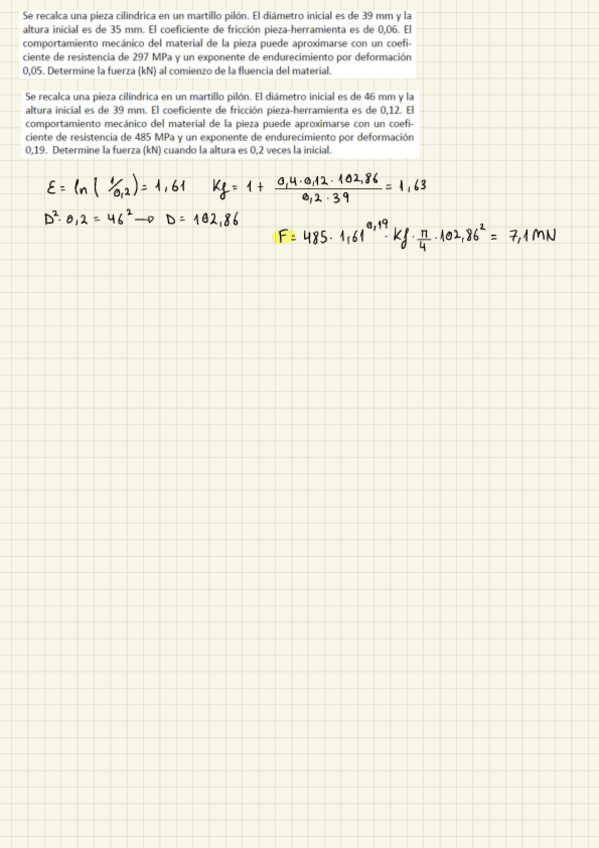 Se recalca una pieza cilíndrica en un martillo pilón. El diámetro inicial es de 39 mm y la
altura inicial es de 35 mm. El coeficiente de fricción pieza-herramienta es de 0,06. El
comportamiento mecánico del material de la pieza puede aproximarse con un coefi-
ciente de resistencia de 297 MPa y un exponente de endurecimiento por deformación
0,05. Determine la fuerza (kN) al comienzo de la fluencia del material.
Se recalca una pieza cilíndrica en un martillo pilón. El diámetro inicial es de 46 mm y la
altura inicial es de 39 mm. El coeficiente de fricción pieza-herramienta es de 0,12. El
comportamiento mecánico del material de la pieza puede aproximarse con un coefi-
ciente de resistencia de 485 MPa y un exponente de endurecimiento por deformación
0,19. Determine la fuerza (kN) cuando la altura es 0,2 veces la inicial.
ε = ln ( 1/0,2 ) = 1,61 Kf = 1 + (0,4·0,12·102,86)/(0,2·39) = 1,63
D²·0,2 = 46² → D = 102,86
F = 485·1,61^0,19·Kf·π/4·102,86² = 7,1 MN